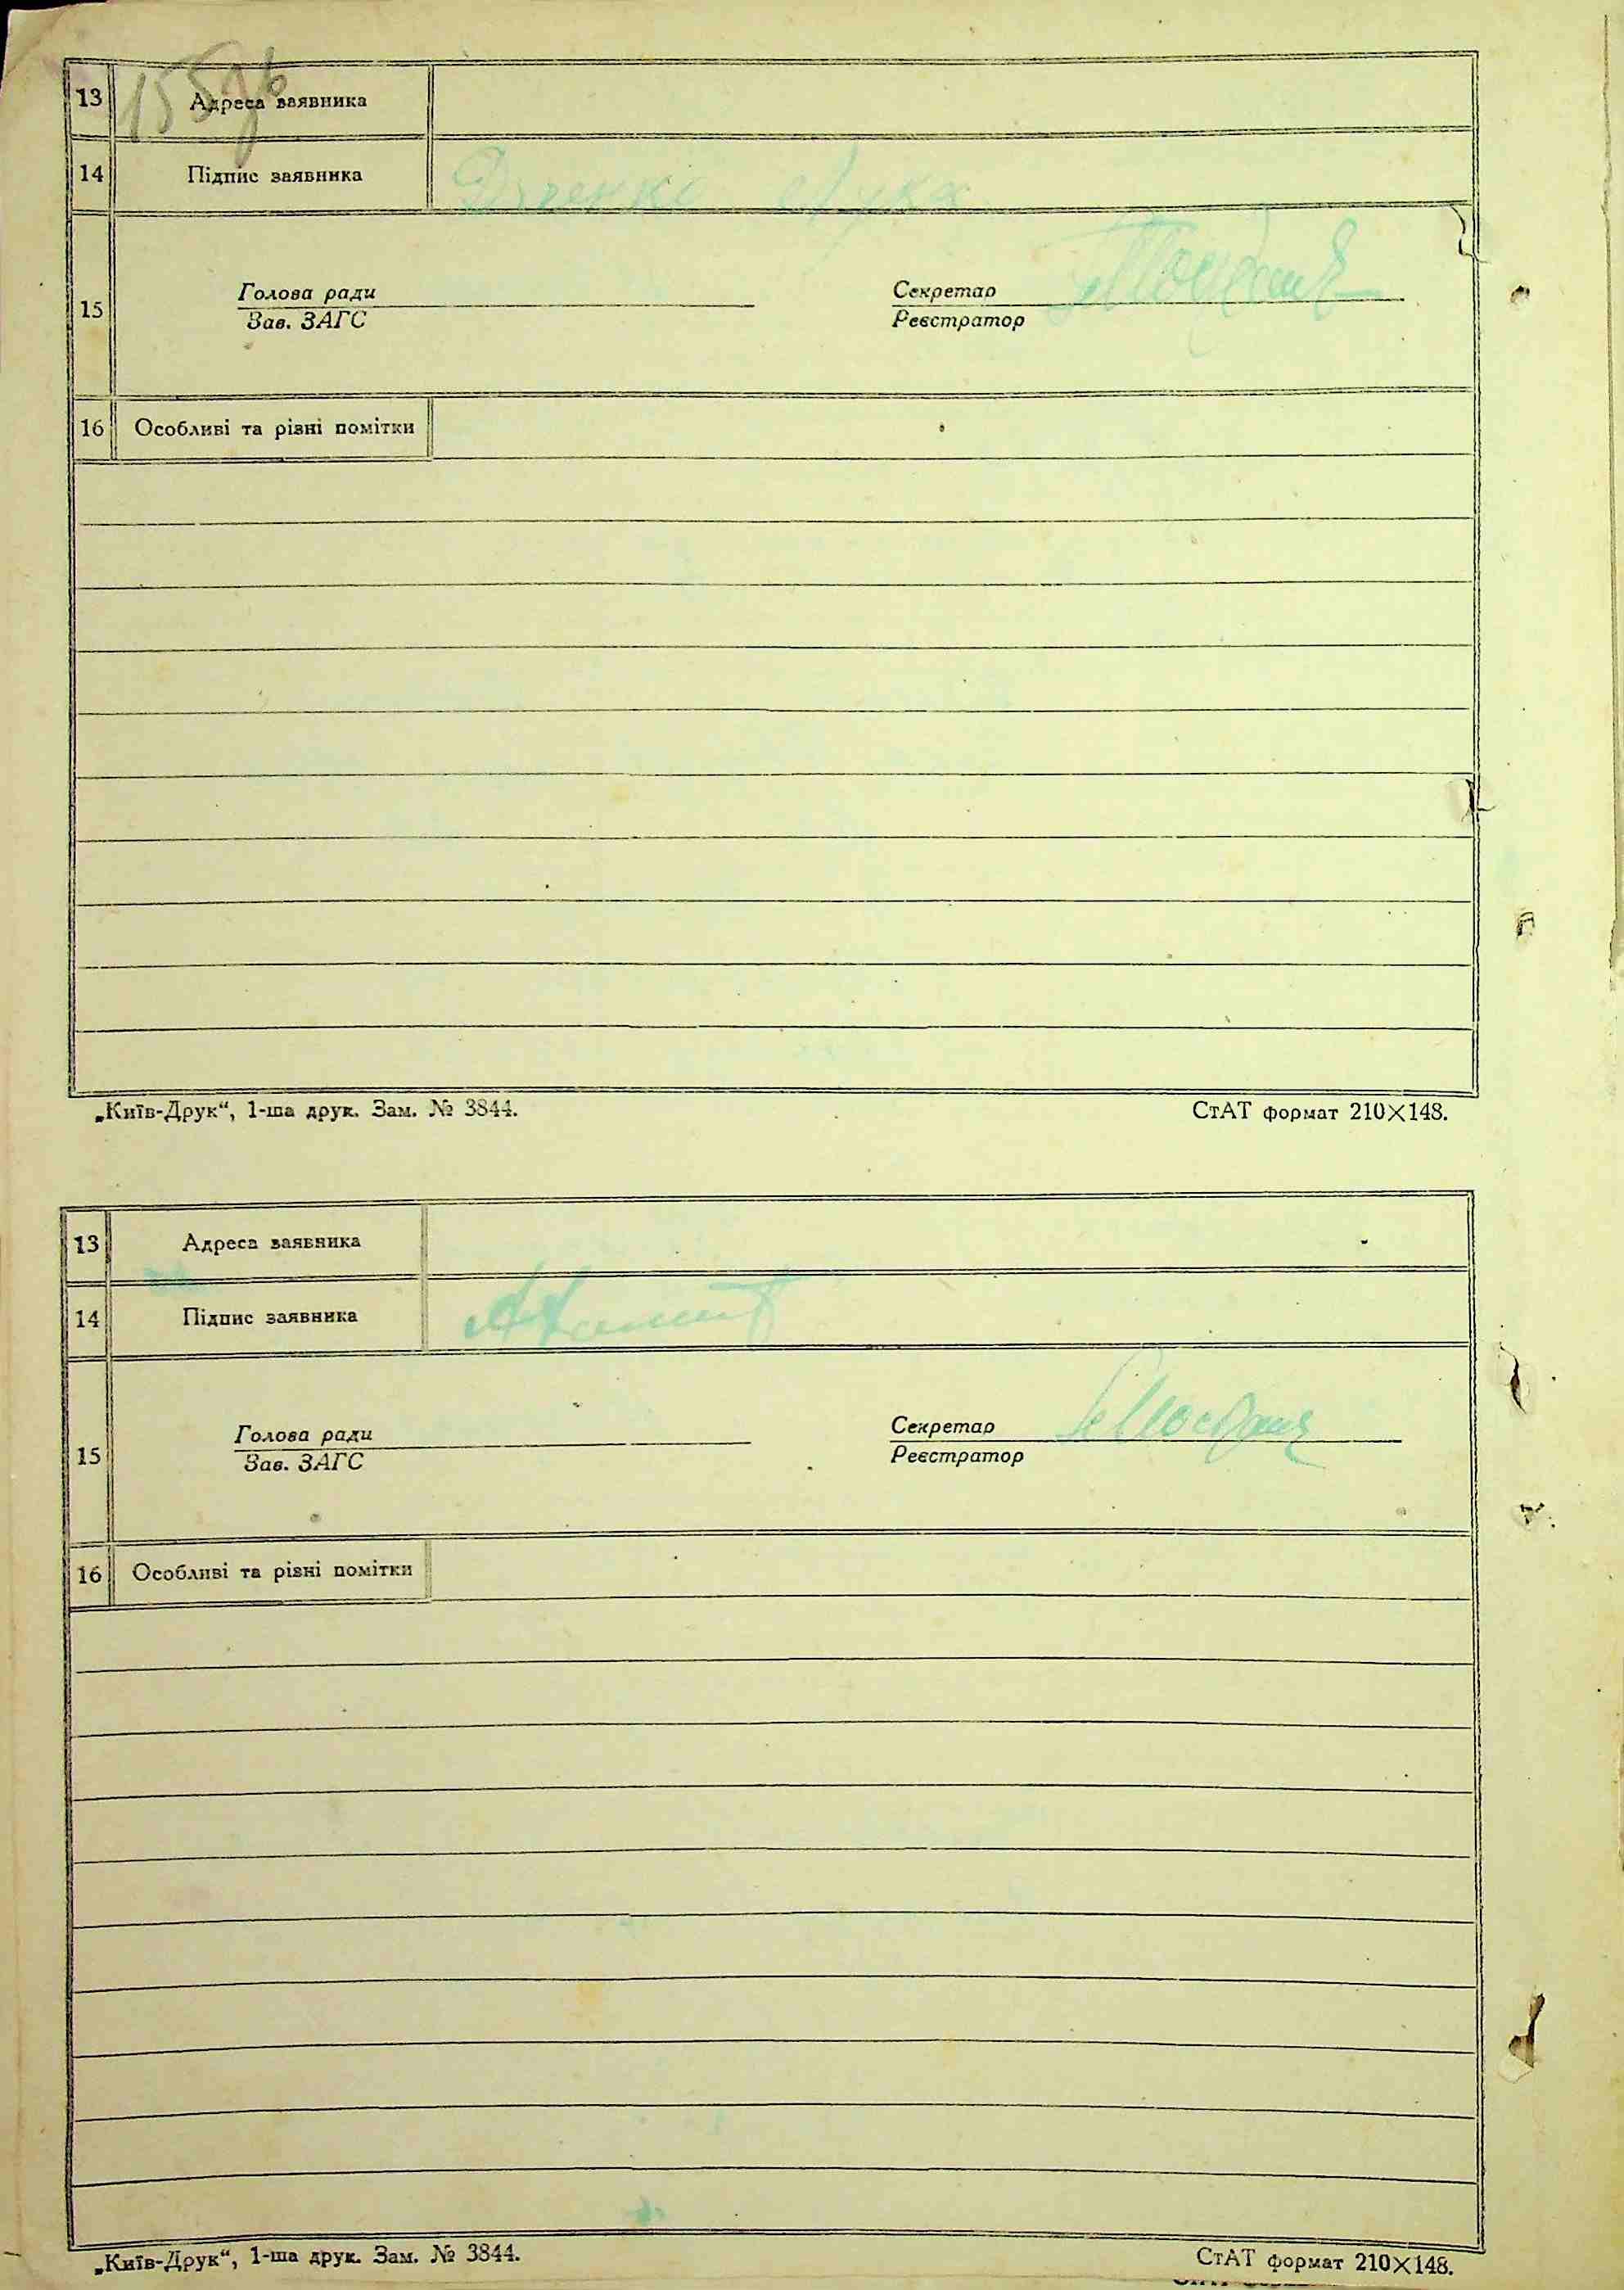 155зв
13 Адреса заявника
14 Підпис заявника Дяченко Лука
Голова ради Секретар
15
Зав. ЗАГС Реєстратор
16 Особливі та різні помітки
„Київ-Друк“, 1-ша друк. Зам. № 3844. СтАТ формат 210×148.
13 Адреса заявника
14 Підпис заявника
Голова ради Секретар
15
Зав. ЗАГС Реєстратор
16 Особливі та різні помітки
„Київ-Друк“, 1-ша друк. Зам. № 3844. СтАТ формат 210×148.